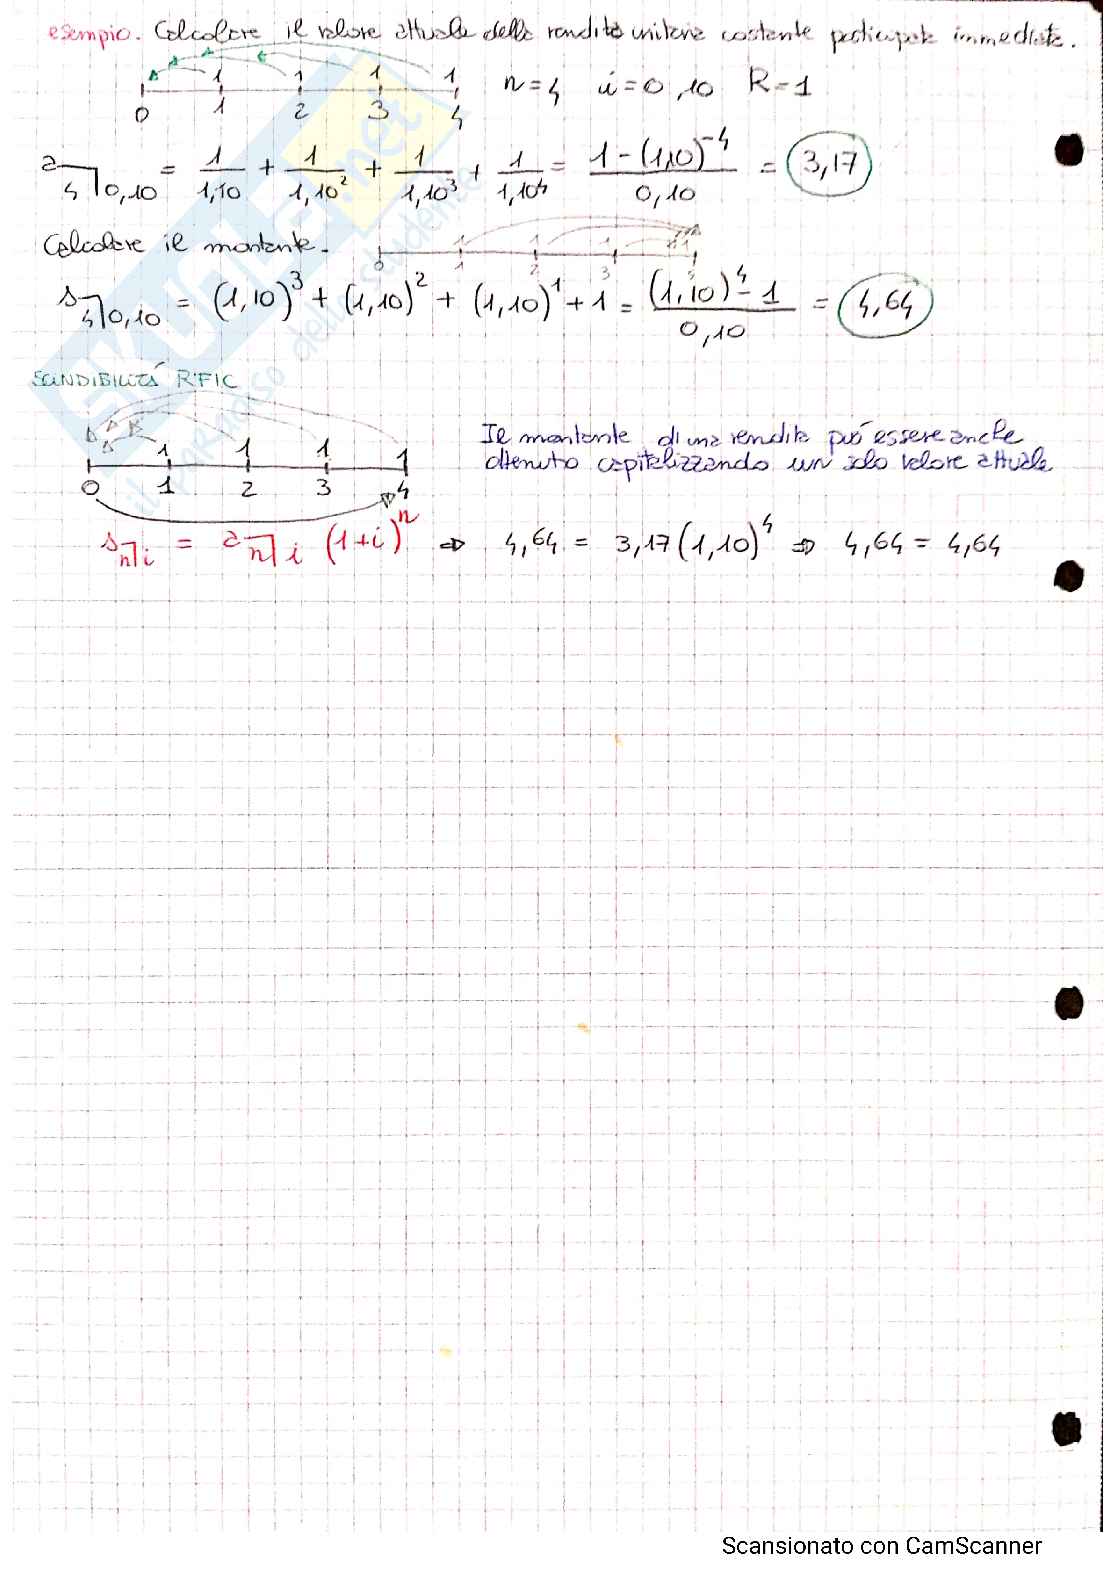 esempio. Calcolare il valore attuale della rendita unitaria costante posticipata immediata.
1 1 1 1
0 1 2 3 4
n=4 i=0,10 R=1
a4̅|0,10 = 1/1,10 + 1/1,10² + 1/1,10³ + 1/1,10⁴ = 1-(1,10)⁻⁴/0,10 = 3,17
Calcolare il montante.
0 1 2 3
s4̅|0,10 = (1,10)³ + (1,10)² + (1,10)¹ + 1 = (1,10)⁴-1/0,10 = 4,64
SCINDIBILITÁ RFIC
1 1 1 1
0 1 2 3 4
Il montante di una rendita puó essere anche
ottenuto capitalizzando un solo valore attuale
sn̅|i = an̅|i (1+i)ⁿ ⇒ 4,64 = 3,17(1,10)⁴ ⇒ 4,64 = 4,64
SKUOLA.net
il paradiso dello studente
Scansionato con CamScanner